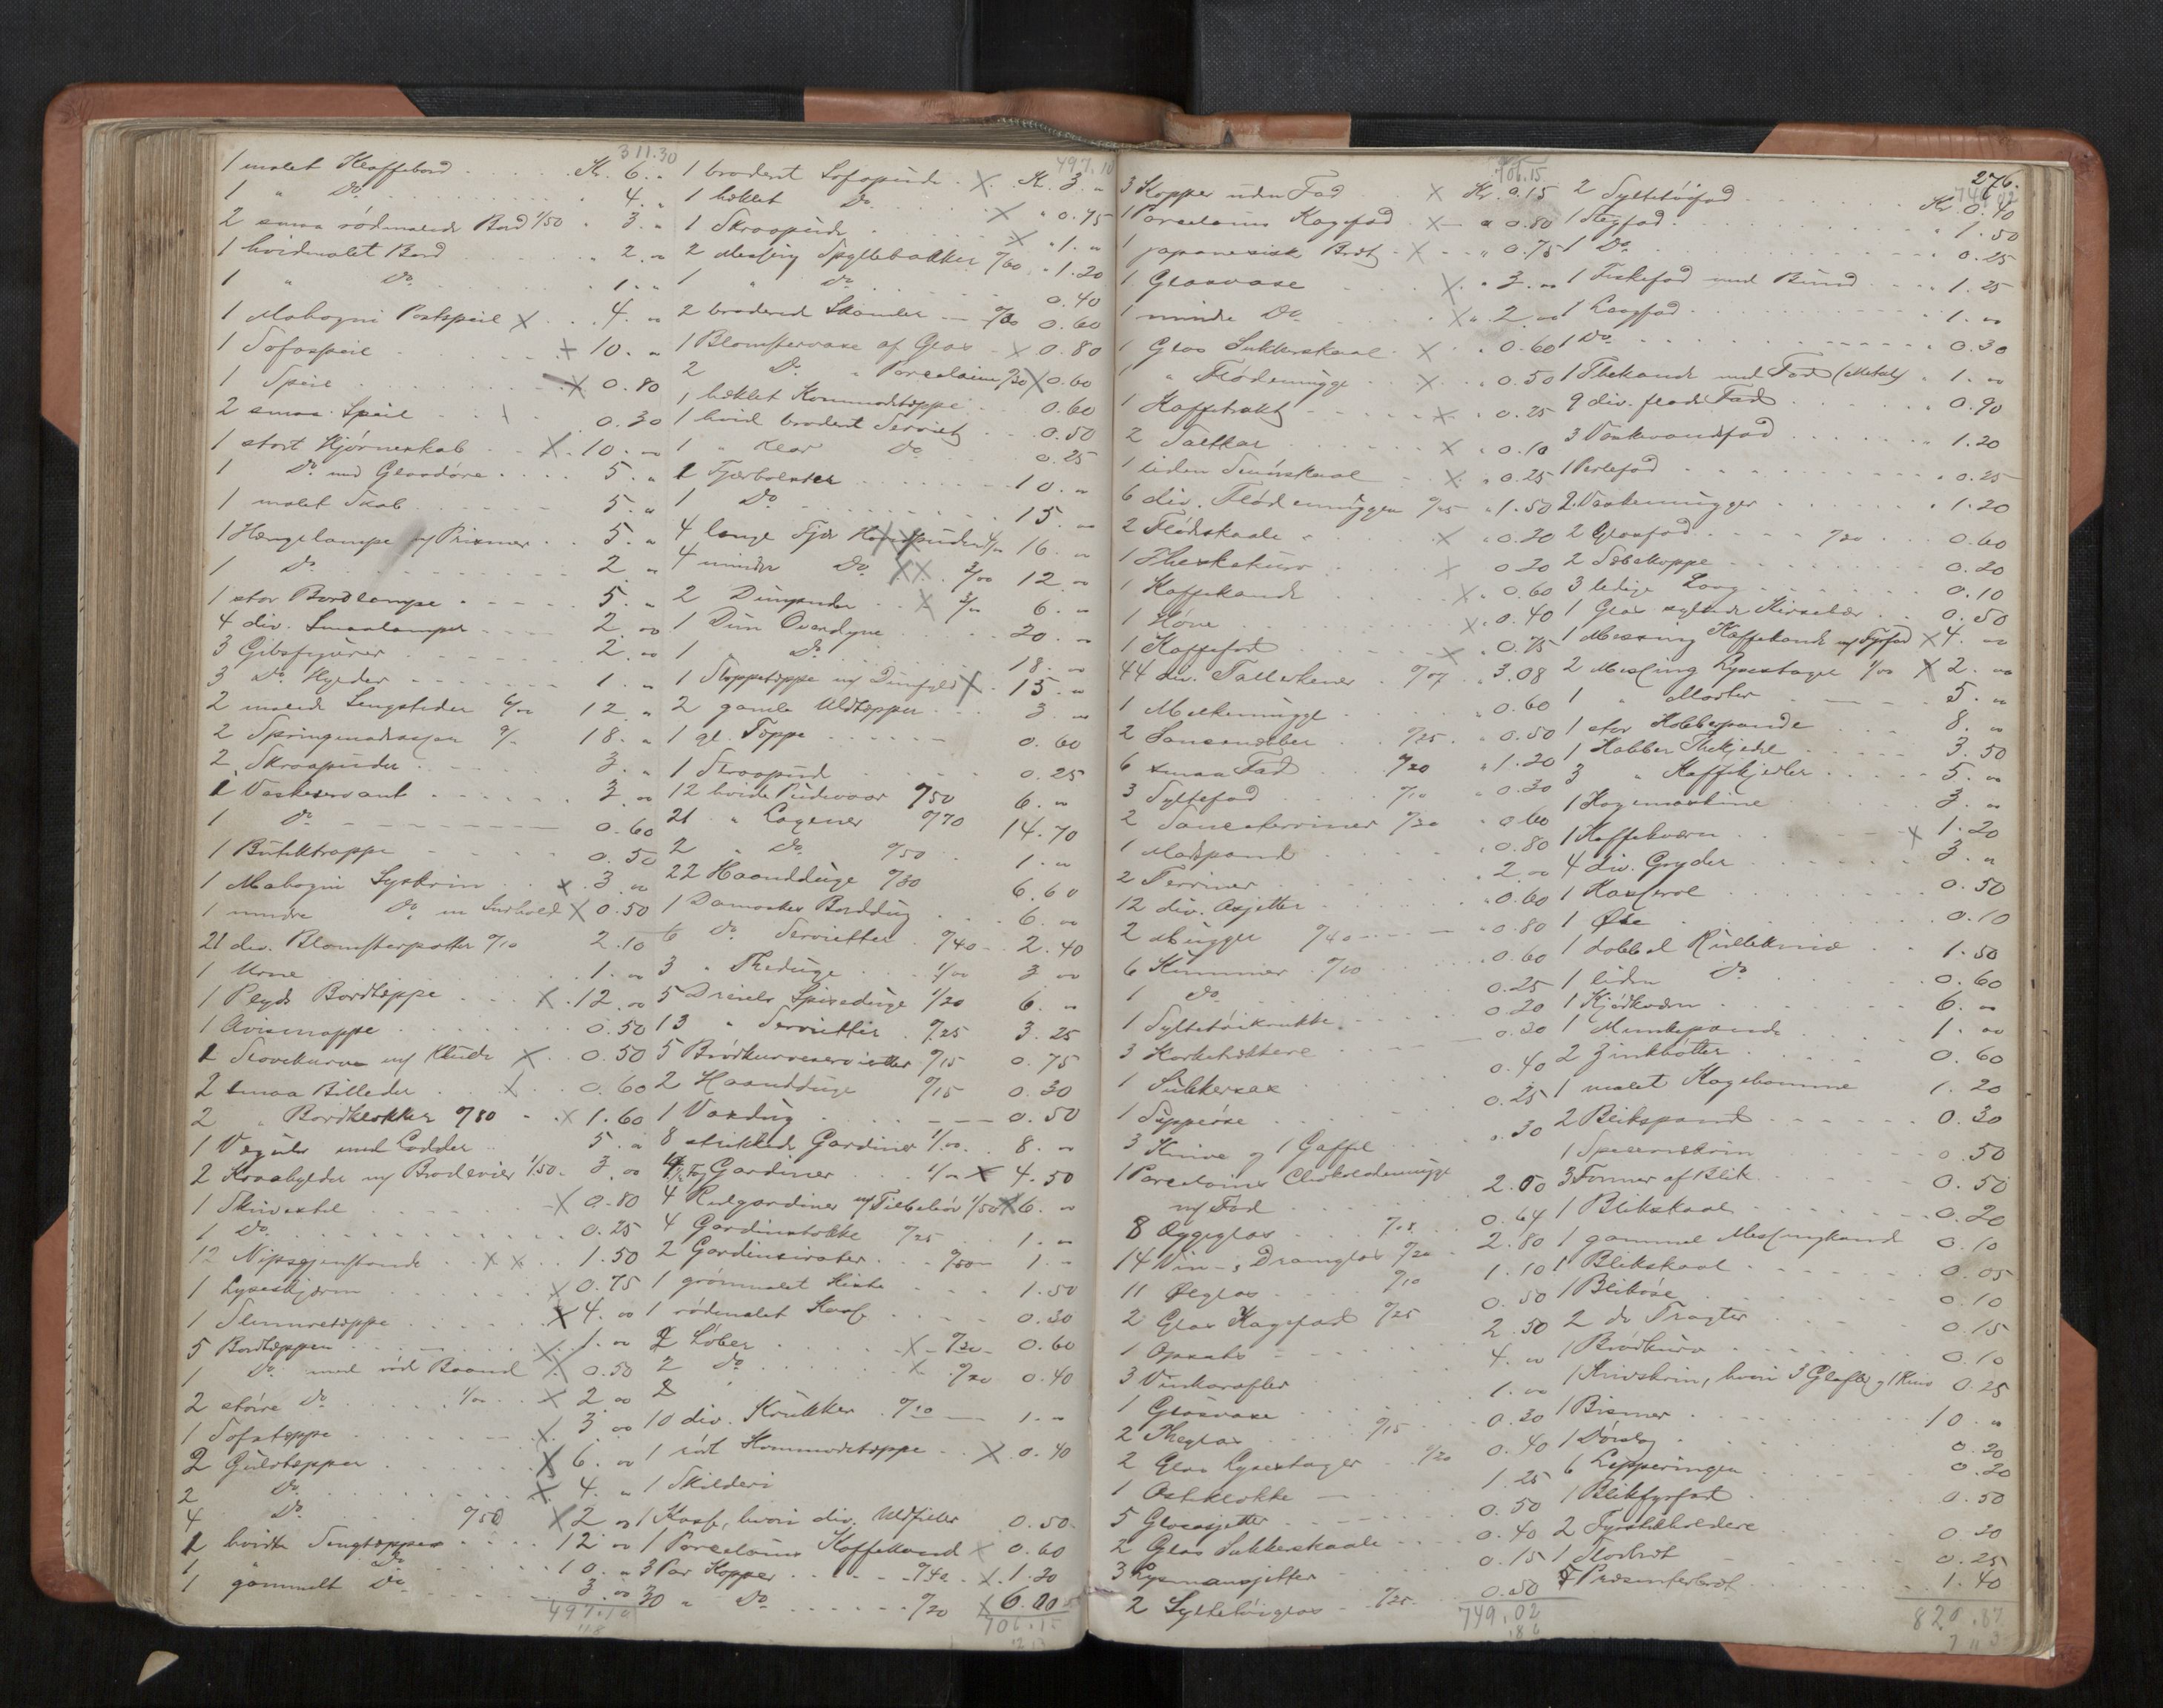 311.30
1 malet Klaffebord Kr. 6. "
1 " Do. 4. "
2 smaa rödmalede Bord 1/50 " 3. "
1 hvidmalet Bord " 2. "
1 " Do. " 1. "
1 Mahogni Postspeil X 4. "
1 Sofaspeil + 10. "
1 Speil X 0.80
2 smaa Speil 0.30
1 stort Hjörneskab X 10. "
1 Do. med Glasdöre 5. "
1 malet Skab 5. "
1 Hængelampe m/ Prismer 5. "
1 Do. 2 "
1 stor Bordlampe 5. "
4 div. Smaalamper 2. "
3 Gibsfigurer 2. "
3 Do. Hylder 1. "
2 malede Sengsteder 6/00 12. "
2 Springmadrasser 9/- 18. "
2 Skraapuder 3. "
1 Vaskeservant 3. "
1 Do. 0.60
1 Butiktrappe 0.50
1 Mahogni Syskrin x 3 "
1 mindre Do. m Indhold X 0.50
21 div. Blomsterpotter 0/10 2.10
1 Urne 1. "
1 Plyds Bordteppe X 12. "
1 Avismappe 0.50
1 Stovekurv m/ Klude X 0.50
2 smaa Billeder X 0.60
2 " Bordklokker 0/80 X 1.60
1 Vægtur med Lodder 5. "
2 Kraahylder m/ Broderier 1/50 3. "
1 Skindextel X 0.80
1 Do. 0.25
12 Nipsgjenstande X X 1.50
1 Lyseskjærm X 0.75
1 Slumreteppe X 4. "
5 Bordtepper X 1. "
1 Do. med rödt Baand X 0.50
2 större Do. 1/00 X 2. "
1 Sofateppe X 3. "
2 Gulvtepper X 6. "
2 Do. X 4. "
4 Do. 0/50 X 2 "
2 hvidte Sengtepper 12 "
1 " Do. 10. "
1 gammelt Do. 3. "
497.10
497.10
1 broderet Sofapude X Kr. 3. "
1 heklet Do. X " 0.75
1 Skraapude X " 1. "
2 Messing Spyttebakker 0/60 " 1.20
1 " Do. 0.40
2 broderede Skamler 0/30 0.60
1 Blomstervase af Glas X 0.80
2 Do. " Porcelain 0/30 X 0.60
1 heklet Kommodeteppe 0.60
1 hvid broderet Serviet 0.50
1 " klar Do. 0.25
1 Fjærbolster 10. "
1 Do. 15. "
4 lange Fjær 4/00 16. "
4 mindre Do. XX 3/00 12. "
2 Dunpuder X 3/00 6. "
1 Dun Overdyne 20. "
1 Do. 18. "
1 Stoppeteppe m/ Dunfyld X 15. "
2 gamle Uldtepper 3. "
1 gl. Teppe 0.60
1 Skraapude 0.25
12 hvide Pudevaar 0/50 6. "
21 " Lagener 0/70 14.70
2 " Do. 0/50 1. "
22 Haandduge 0/30 6.60
1 Damaskes Borddug 6. "
6 Do. Servietter 0/40 2.40
3 " Theduge 1/00 3 "
5 Dreiels Spiseduge 1/20 6. "
13 " Servietter 0/25 3.25
5 Brödkurveservietter 0/15 0.75
2 Haandduge 0/15 0.30
1 Voxdug 0.50
8 strikkede Gardiner 1/00 8. "
4 1/2 Fag Gardiner 1/00 X 4.50
4 Rulgardiner m/ Tilbehör 1/50 X 6. "
4 Gardinstokke 0/25 1. "
2 Gardinsirater 0/50 1. "
1 grönmalet Kiste 1.50
1 rödmalet Kasse 0.30
2 Löber X 0/30 0.60
2 Do. X 0/20 0.40
10 div. Krukker 0/10 1. "
1 rödt Kommodeteppe X 0.40
1 Skilderi
1 Kasse, hvori div. Uldfiller 0.50
1 Porcelains Kaffekande X 0.60
3 Par Kopper 0/40 X 1.20
30 " Do. 0/20 X 6.00
706.15
706.15
3 Kopper uden Fad X Kr. 0.15
1 Porcelains Kagefad X " 0.80
1 japanesisk Bret X " 0.75
1 Glasvase X " 3. "
1 mindre Do. X " 2. "
1 Glas Sukkerskaal X " 0.60
1 " Flödemugge X " 0.50
1 Kaffetrakt X " 0.25
2 Saltkar X " 0.10
1 liden Smörskaal X " 0.25
6 div. Flödemugger 0/25 " 1.50
2 Flödskaale X " 0.20
1 Theskekurv X 0.20
1 Kaffekande X " 0.60
1 Höne X " 0.40
1 Kaffefad X " 0.75
44 div. Tallerkener 0/07 " 3.08
1 Melkemugge " 0.60
2 Sausenebber 0/25 " 0.50
6 smaa Fad 0/20 " 1.20
3 Syltefad 0/10 " 0.30
2 Sauceterriner 0/30 " 0.60
1 Madspand " 0.80
2 Terriner " 2. "
12 div. Asjetter " 0.60
2 Mugger 0/40 " 0.80
6 Kummer 0/10 0.60
1 Do. 0.25
1 Syltetöikrukke 0.20
3 Korketrekkere 0.30
1 Sukkersax 0.40
1 Suppeöse 0.25
3 Knive og 1 Gaffel ".30
1 Porcelains Chokolademugge
m/ Fad 2.00
8 Ægglas 0/08 0.64
14 Vin- & Dramglas 0/20 2.80
11 Ölglas 0/10 1.10
2 Glas Kagefad 0/25 0.50
1 Opsats 2.50
3 Vinkarafler 4. "
1 Glasvase 1. "
2 Theglas 0/15 0.30
2 Glas Lysestager 0/20 0.40
1 Osteklokke 1.25
5 Glasasjetter 0.50
2 Glas Sukkerskaale 0.40
3 Lysmansjetter 0.15
2 Syltetöiglas 0/25 0.50
749.02
276.
2 Syltetöifad Kr. 0.40
1 Stegfad " 1.50
1 Do. " 0.25
1 Fiskefad med Bund 1.25
1 Laagfad 1. "
1 Do. 0.30
1 Thekande med Fad (Metal) " 1. "
9 div. flade Fad 0.90
3 Vaskevandsfad " 1.20
1 Perlefad " 0.25
2 Vaskemugger " 1.20
2 Glasfad 0/30 0.60
2 Sæbekoppe 0.20
3 ledige Laag 0.10
1 Glas syltede Kirsebær 0.50
1 Messing Kaffekande m/ Fyrfad X 4. "
2 Messing Lysestager 1/00 X 2. "
1 " Morter 5. "
1 stor Kobberpande 8. "
1 Kobber Thekjedel 3.50
3 " Kaffekjedler 5. "
1 Kogemaskine 3. "
1 Kaffekværn X 1.20
4 div. Gryder 3. "
1 Kasserol 0.50
1 Øse 0.10
1 dobbel Rullekniv 1.50
1 liden Do. 0.60
1 Kjödkværn 6. "
1 Munkepande 1. "
2 Zinkbötter 0.60
1 malet Kagebomme 1.20
2 Blikspand 0.30
1 0.50
3 Former af Blik 0.50
1 Blikskaal 0.20
1 gammel Messingkande 0.10
1 Blikskaal 0.05
1 Bliköse 0.10
2 do Tragter 0.15
1 Brödkurv 0.10
1 Knivskrin, hvori 3 Gafler og 1 Kniv 0.25
1 Bismer 10. "
1 Dörslag 0.20
6 0.20
1 Blikfyrfad 0.50
2 0.20
1 0.25
7 Præsenterbret 1.40
820.87